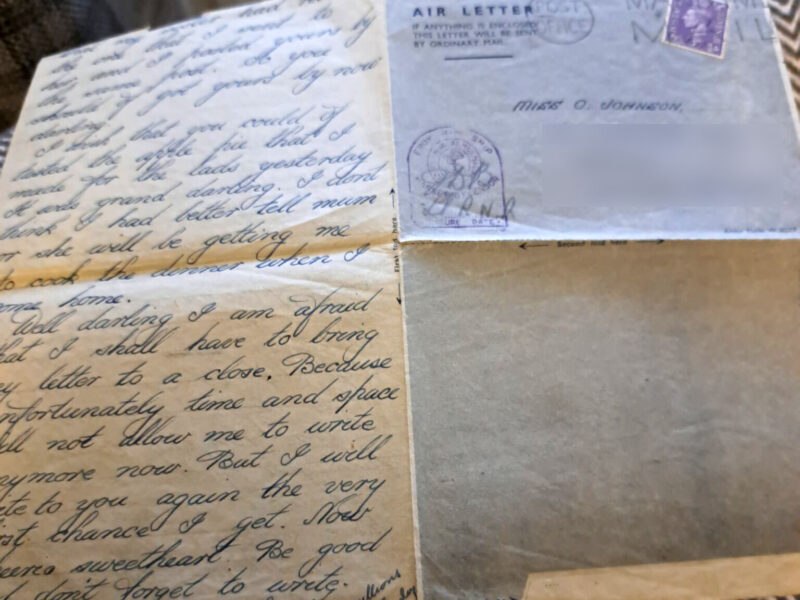 the one that I went to
and I posted yours by
the same post. So you
should of got yours by now
darling.
I wish that you could of
tasted the apple pie that I
made for the lads yesterday
It was grand darling. I dont
think I had better tell mum
or she will be getting me
to cook the dinner when I
come home.
Well darling I am afraid
that I shall have to bring
my letter to a close. Because
unfortunately time and space
will not allow me to write
anymore now. But I will
write to you again the very
first chance I get. Now
sweetheart. Be good
don't forget to write.
AIR LETTER
IF ANYTHING IS ENCLOSED
THIS LETTER WILL BE SENT
BY ORDINARY MAIL.
POST
OFFICE
MAIL
MISS O. JOHNSON,
First fold here
Second fold here